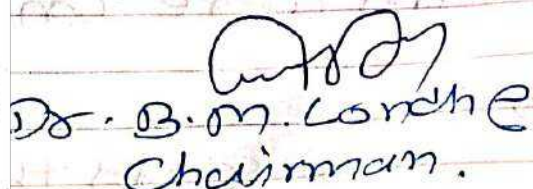 Dr. B.M. Londhe
Chairman.